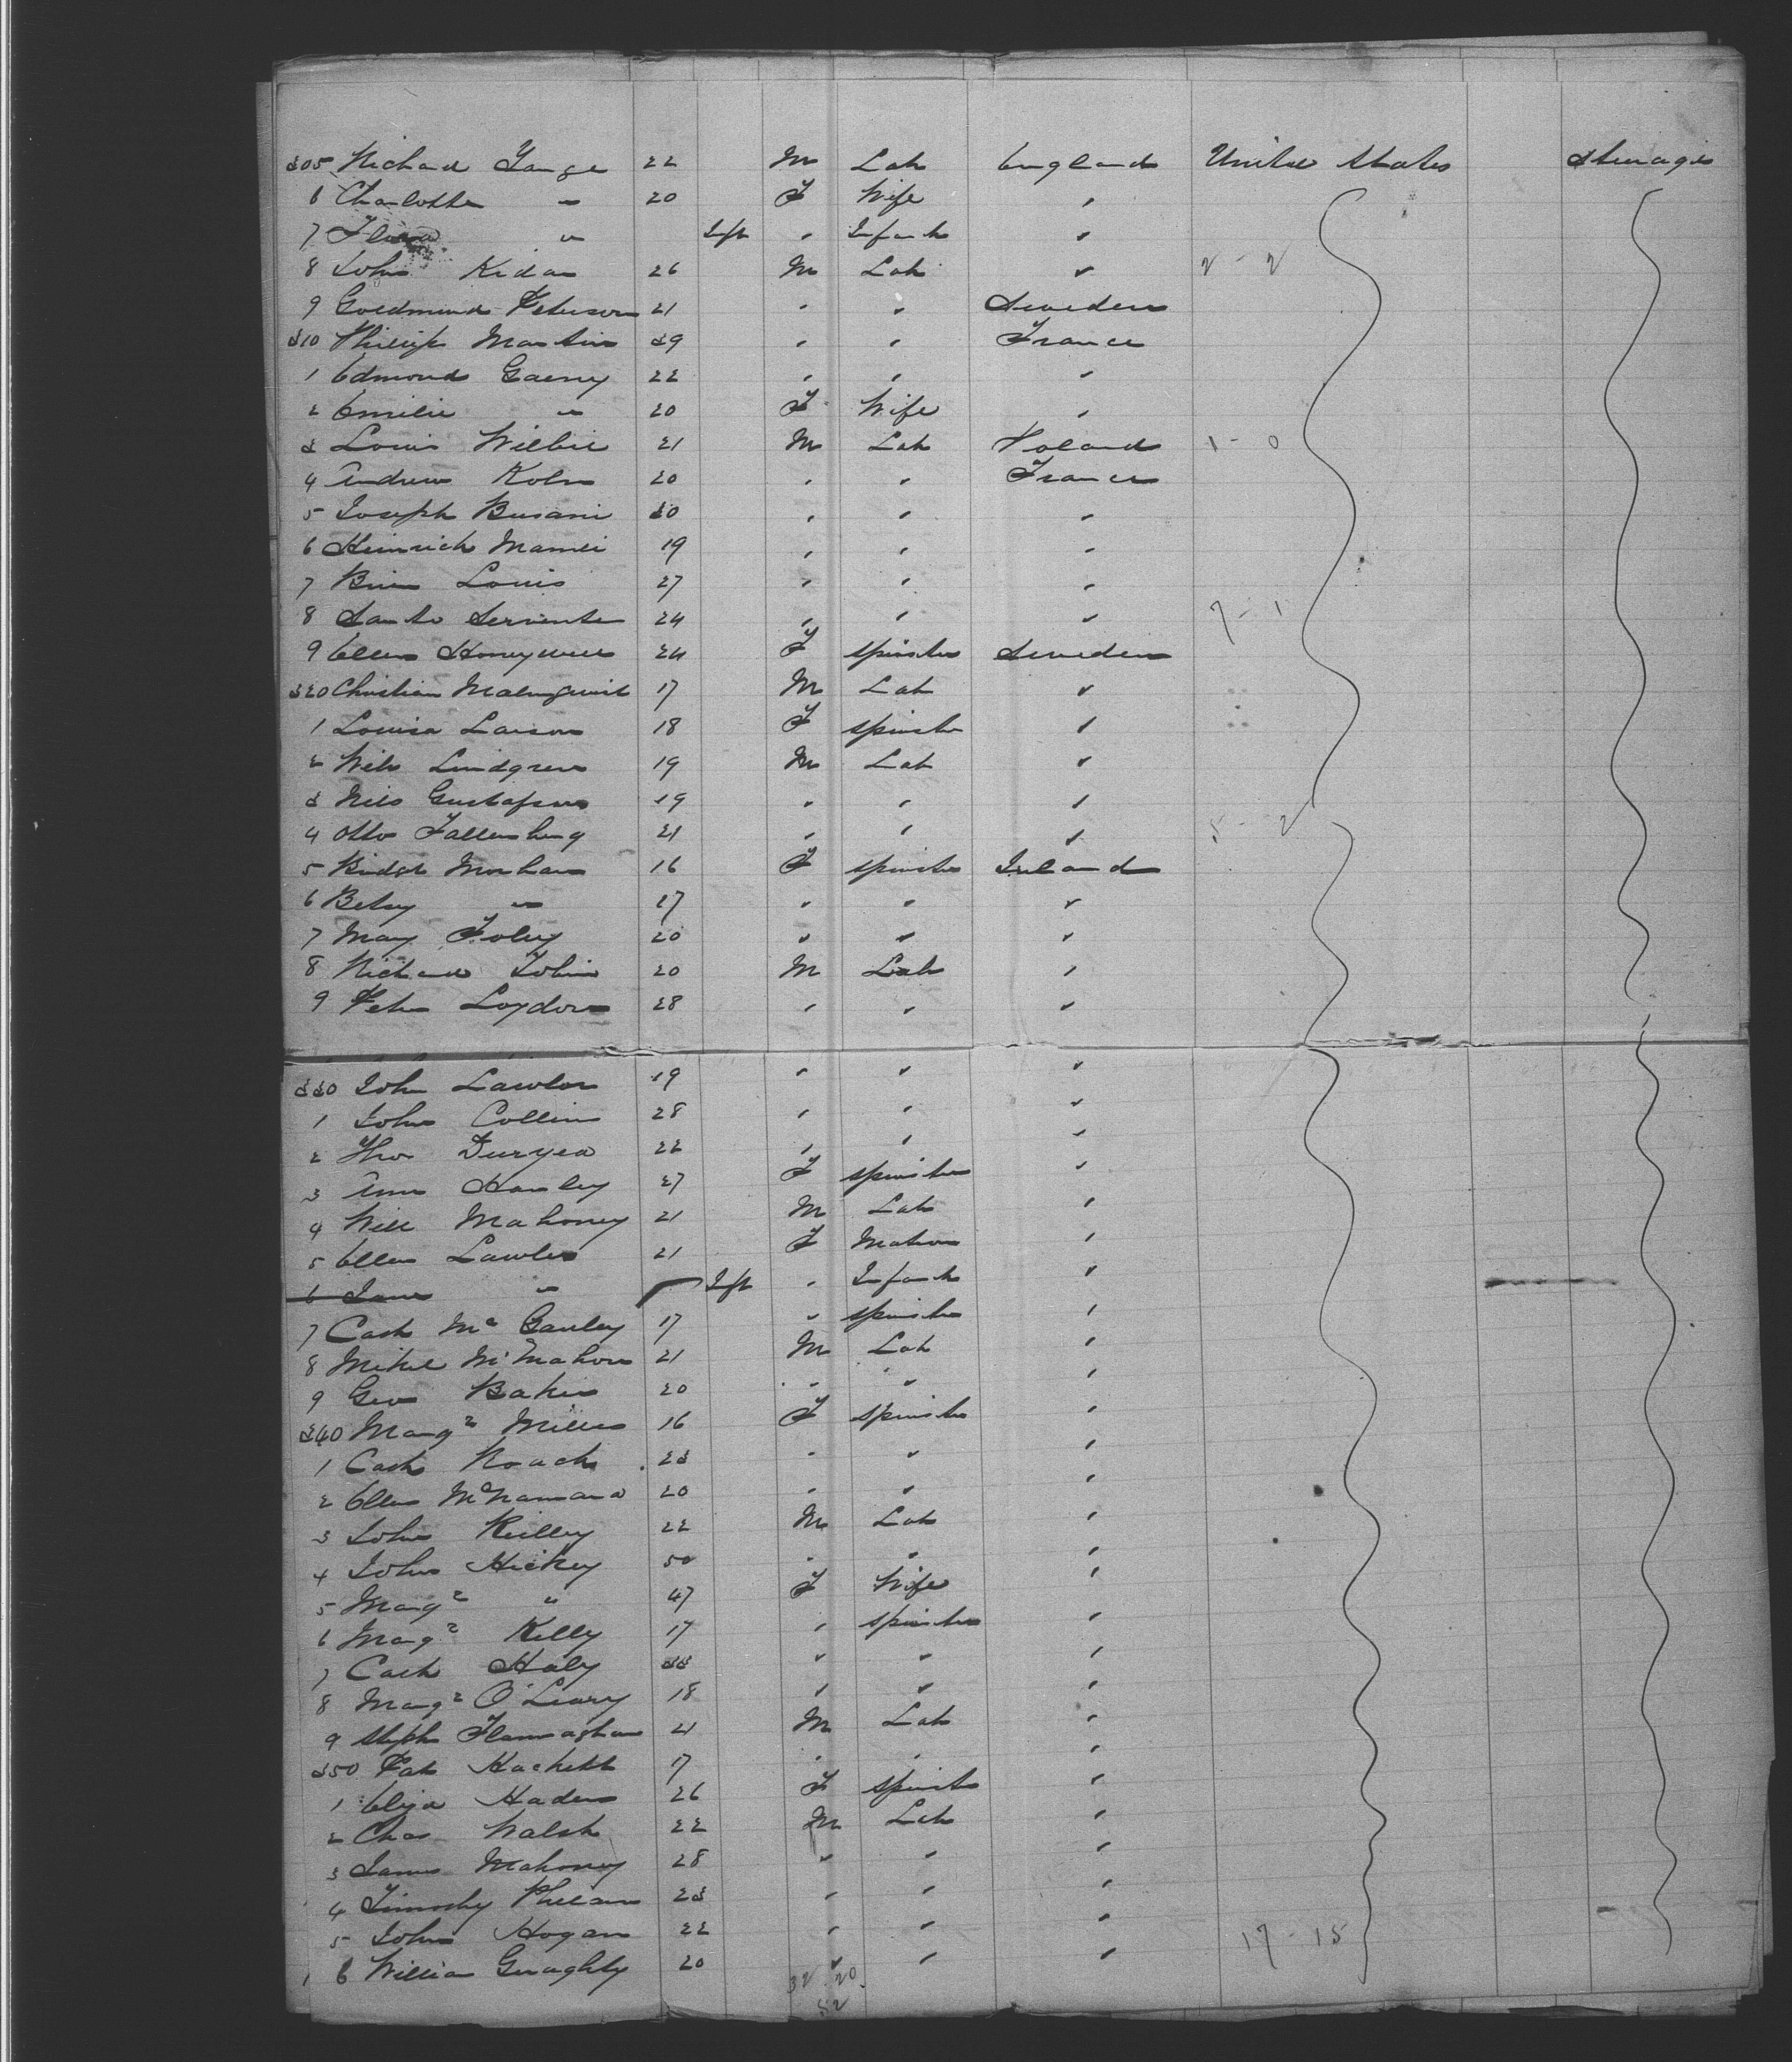 305 Richard Yange 22 M Lab England United States Steerage
6 Charlotte " 20 F Wife "
7 Flora " Inft " Infant "
8 John Kidan 26 M Lab " 2 - 2
9 Goedmund Peterson 21 " " Sweden
310 Phillip Martin 39 " " France
1 Edmond Gaeny 22 " " "
2 Emilie " 20 F Wife "
3 Louis Wilbie 21 M Lab Holand 1 - 0
4 Andrew Kolm 20 " " France
5 Joseph Busani 30 " " "
6 Heinrich Mamli 19 " " "
7 Louis 27 " " "
8 Santo Serviente 24 " " " 7 - 1
9 Ellen Honeywell 24 F Spinster Sweden
320 Christian Malmquist 17 M Lab "
1 Louisa Larson 18 F Spinster "
2 Nils Lindgren 19 M Lab "
3 Nils Gustafson 19 " " "
4 Otto Fallenberg 21 " " " 5 - 2
5 Bridgt Monhan 16 F Spinster Ireland
6 Betsy " 17 " " "
7 Mary Foley 20 " " "
8 Richard Tobin 20 M Lab "
9 Peter Loydon 28 " " "
330 John Lawlor 19 " " "
1 John Collins 28 " " "
2 Tho Duryea 22 " " "
3 Ann Hanley 27 F Spinster "
4 Will Mahoney 21 M Lab "
5 Ellen Lawler 21 F Matron "
6 Jane " Inft " Infant "
7 Cath Mc Ganley 17 " Spinster "
8 Mikel McMahon 21 M Lab "
9 Geo Baker 20 " " "
340 Margt Miller 16 F Spinster "
1 Cath Roach 23 " " "
2 Ellen McNamara 20 " " "
3 John Reilley 22 M Lab "
4 John Hickey 50 " " "
5 Margt " 47 F Wife "
6 Margt Kelly 17 " Spinster "
7 Cath Haly 33 " " "
8 Margt O'Leary 18 " " "
9 Steph Flannaghan 21 M Lab "
350 Pat Hackett 17 " " "
1 Eliza Haden 26 F Spinster "
2 Chas Walsh 22 M Lab "
3 James Mahoney 28 " " "
4 Timothy Phelan 23 " " "
5 John Hogan 22 " " " 17 - 15
6 William Geraghty 20 " " "
32 20
52